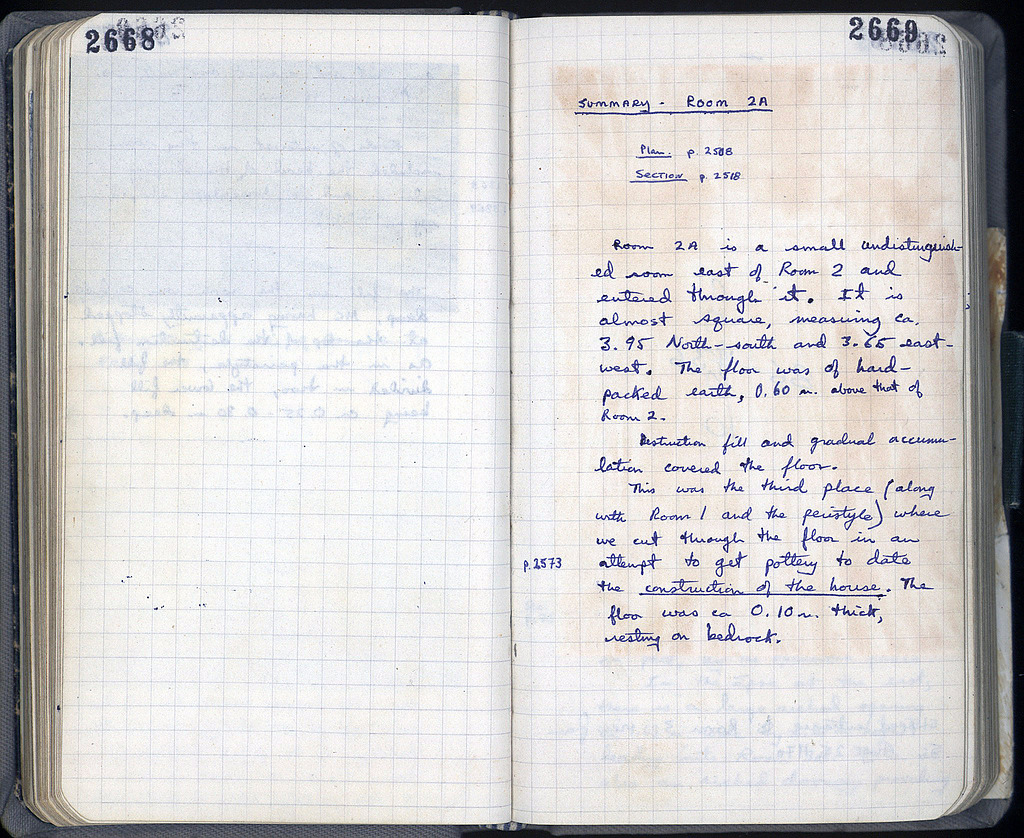 2668
2669
SUMMARY - ROOM 2A
Plan. p. 2508
SECTION p. 2518
Room 2A is a small undistinguish-
ed room east of Room 2 and
entered through it. It is
almost square, measuring ca.
3.95 North-south and 3.65 east-
west. The floor was of hard-
packed earth, 0.60 m. above that of
Room 2.
Destruction fill and gradual accumu-
lation covered the floor.
This was the third place (along
with Room 1 and the peristyle) where
we cut through the floor in an
p. 2573 attempt to get pottery to date
the construction of the house. The
floor was ca 0.10 m. thick,
resting on bedrock.